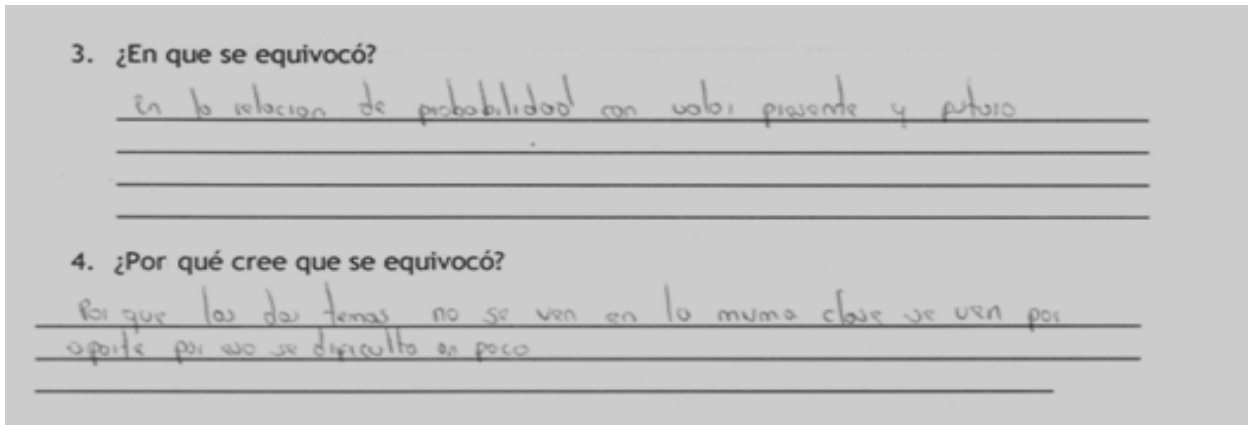 3. ¿En que se equivocó?
En la relacion de probabilidad con valor presente y futuro
4. ¿Por qué cree que se equivocó?
Por que los dos temas no se ven en la misma clase se ven por
aparte por eso se dificulta un poco